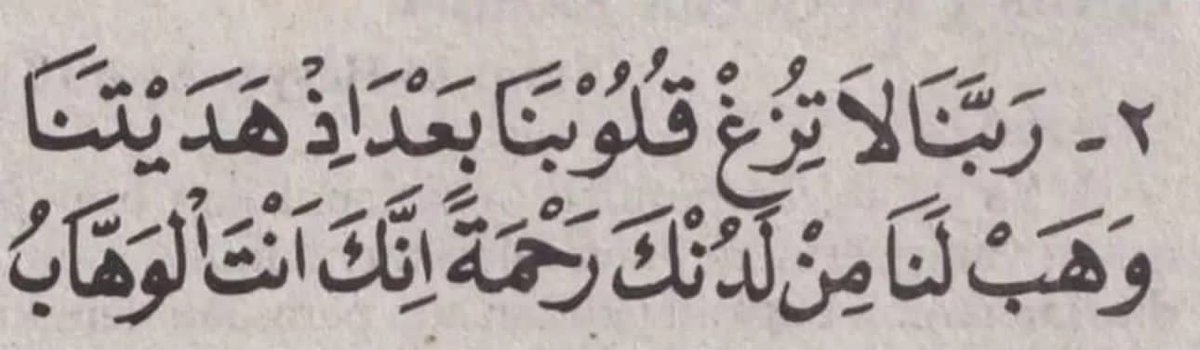 ٢ - رَبَّنَا لاَ تُزِغْ قُلُوْبَنَا بَعْدَ اِذْ هَدَيْتَنَا
وَهَبْ لَنَا مِنْ لَدُنْكَ رَحْمَةً اِنَّكَ اَنْتَ اْلوَهَّابُ